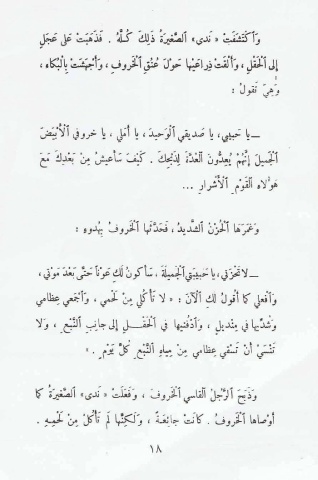 وَاكْتَشَفَتْ « نَدَى» الصَّغِيرَةُ ذٰلِكَ كُلَّهُ . فَذَهَبَتْ عَلَى عَجَلٍ
إِلَى الْحَقْلِ ، وَأَلْقَتْ ذِرَاعَيْهَا حَوْلَ عُنُقِ الْخَرُوفِ ، وَأَجْهَشَتْ بِالْبُكَاءِ ،
وَهِيَ تَقُولُ :
ـ يَا حَبِيبِي ، يَا صَدِيقِي الْوَحِيدَ ، يَا أَمَلِي ، يَا خَرُوفِي الْأَبْيَضَ
الْجَمِيلَ إِنَّهُمْ يُعِدُّونَ الْعُدَّةَ لِذَبْحِكَ . كَيْفَ سَأَعِيشُ مِنْ بَعْدِكَ مَعَ
هٰؤُلَاءِ الْقَوْمِ الْأَشْرَارِ ...
وَغَمَرَهَا الْحُزْنُ الشَّدِيدُ ، فَحَدَّثَهَا الْخَرُوفُ بِهُدُوءٍ :
ـ لَا تَحْزَنِي ، يَا حَبِيبَتِي الْجَمِيلَةَ ، سَأَكُونُ لَكِ عَوْنًا حَتَّى بَعْدَ مَوْتِي ،
وَافْعَلِي كَمَا أَقُولُ لَكِ الْآنَ : « لَا تَأْكُلِي مِنْ لَحْمِي ، وَاجْمَعِي عِظَامِي
وَشُدِّيهَا فِي مِنْدِيلٍ ، وَادْفُنِيهَا فِي الْحَقْلِ إِلَى جَانِبِ النَّبْعِ ، وَلَا
تَنْسَيْ أَنْ تَسْقِي عِظَامِي مِنْ مِيَاهِ النَّبْعِ كُلَّ يَوْمٍ . »
وَذَبَحَ الرَّجُلُ الْقَاسِي الْخَرُوفَ ، وَفَعَلَتْ « نَدَى» الصَّغِيرَةُ كَمَا
أَوْصَاهَا الْخَرُوفُ . كَانَتْ جَائِعَةً ، وَلٰكِنَّهَا لَمْ تَأْكُلْ مِنْ لَحْمِهِ .
١٨